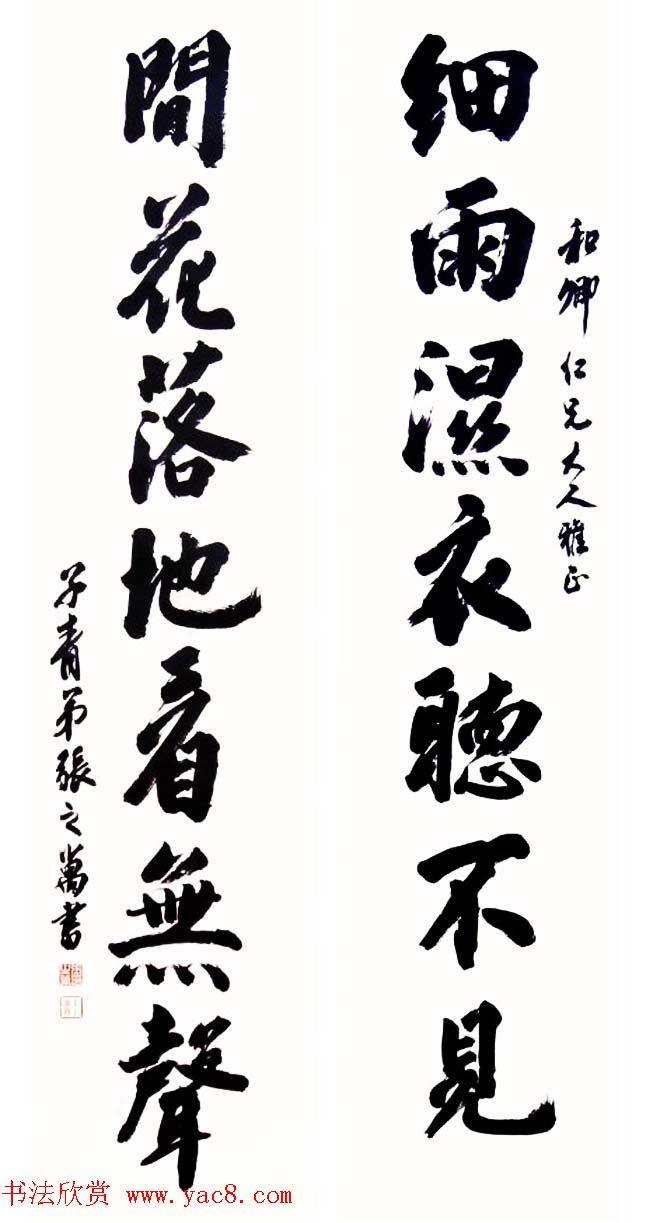 和卿仁兄大人雅正
细雨濕衣聽不見
閒花落地看無聲
子青弟張之萬書
书法欣赏 www.yac8.com